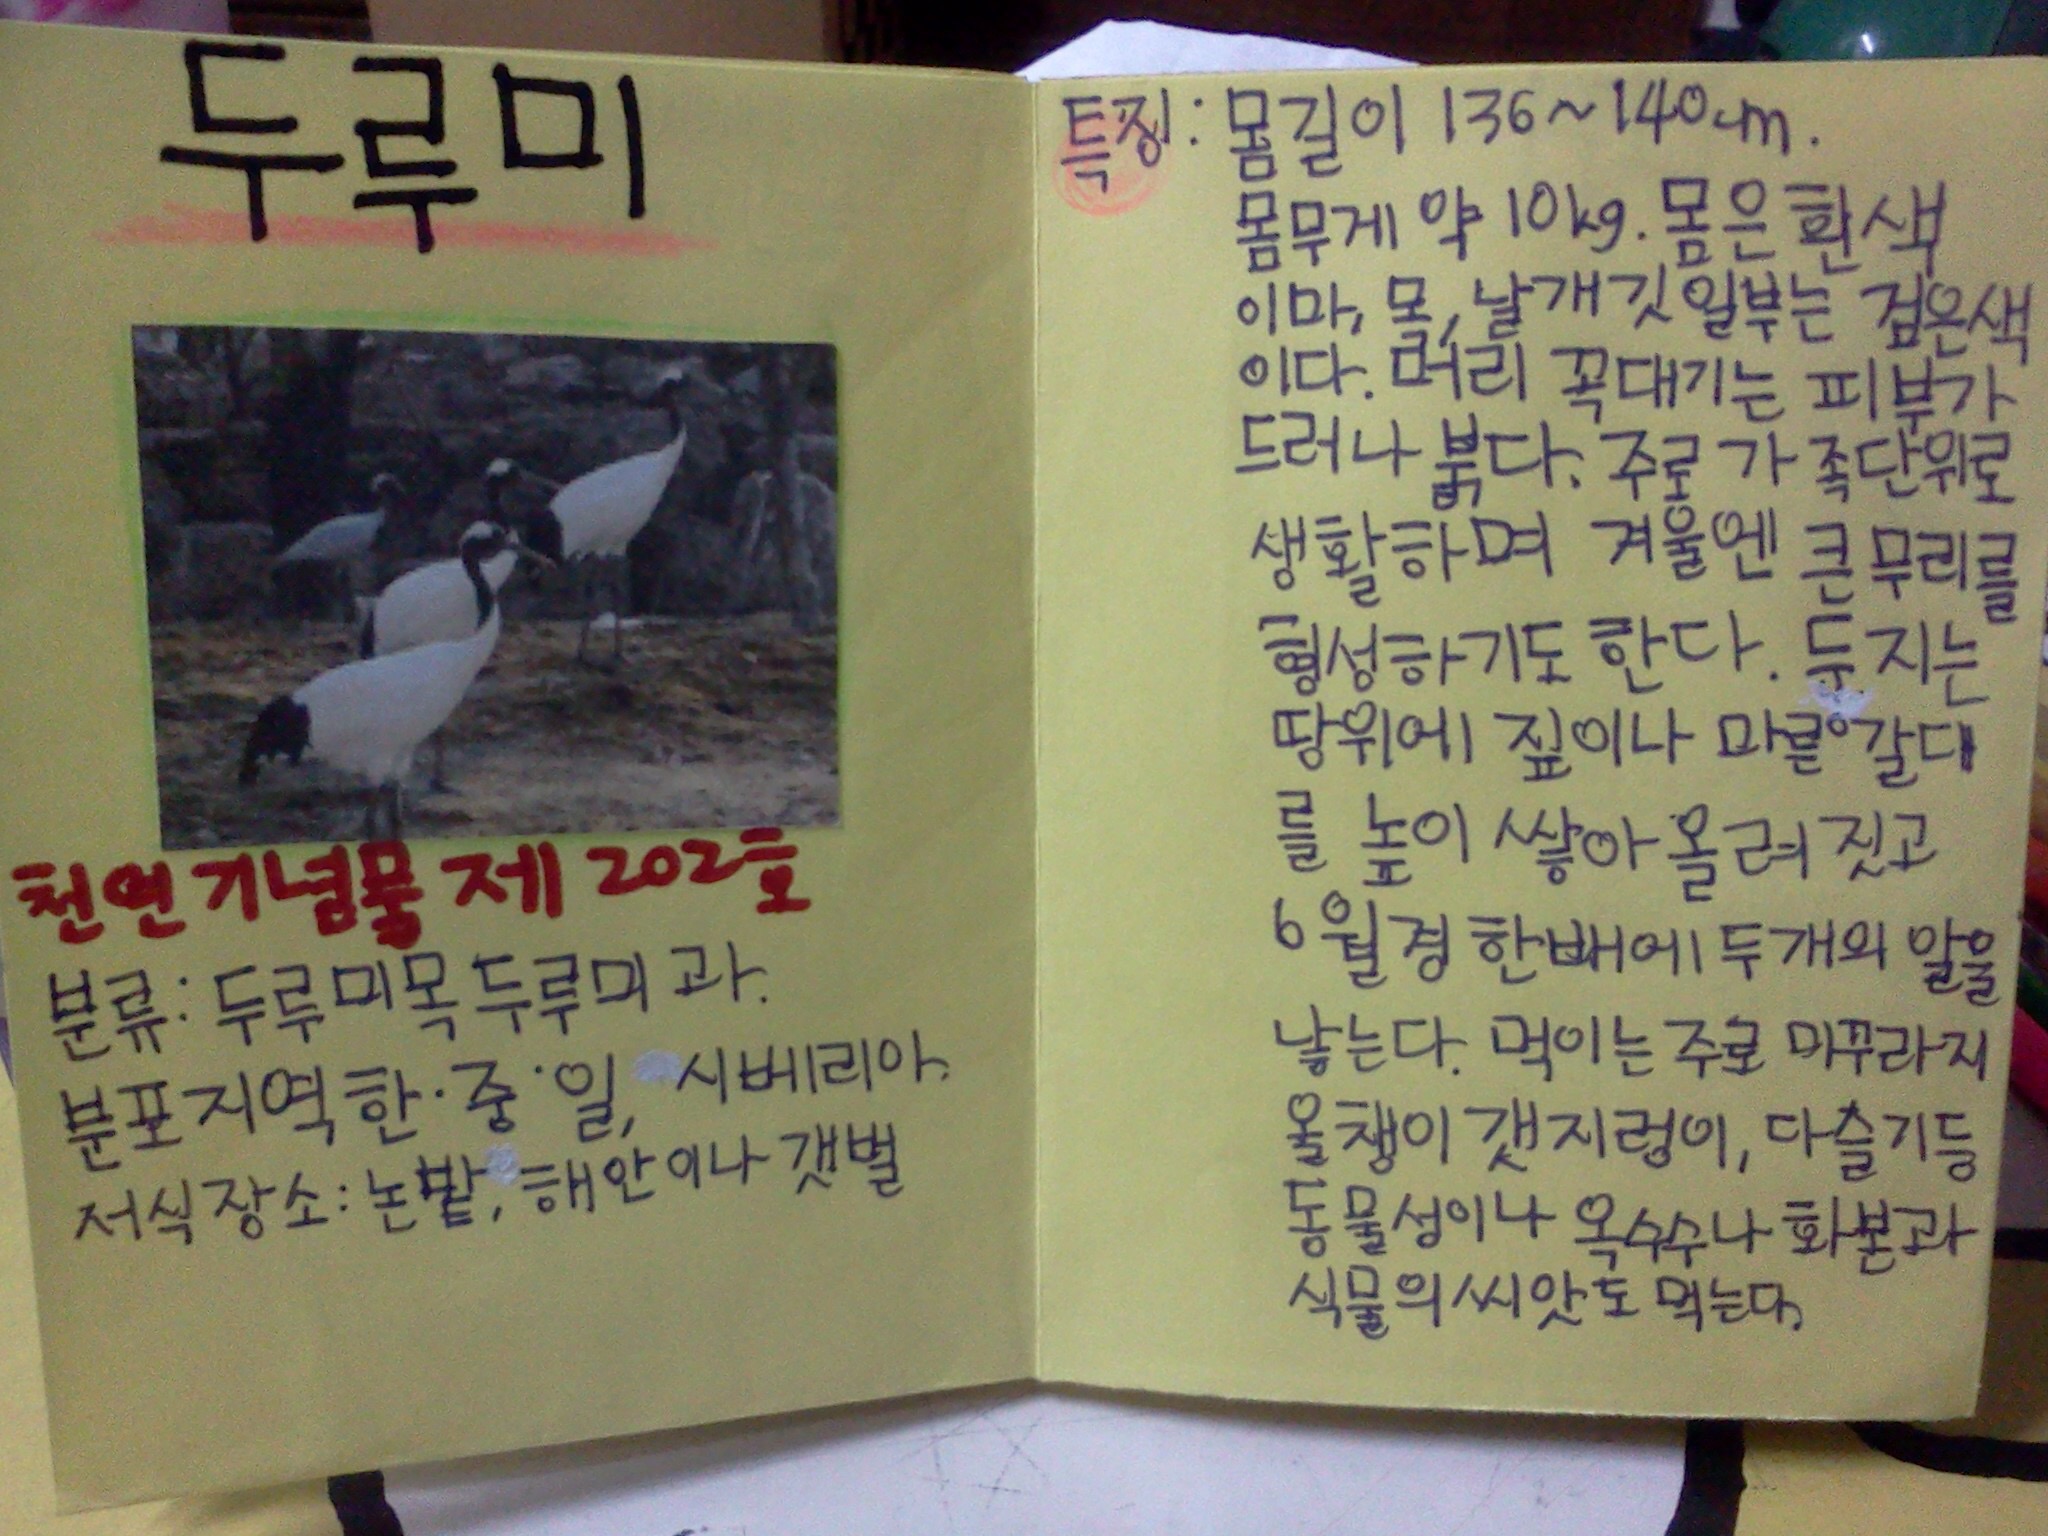 두루미
천연기념물 제 202호
분류: 두루미목 두루미 과.
분포지역 한·중·일, 시베리아.
저식장소: 논밭, 해안이나 갯벌
특징: 몸길이 136~140cm.
몸무게 약 10kg. 몸은 흰색
이마, 목, 날개깃 일부는 검은색
이다. 머리 꼭대기는 피부가
드러나 붉다. 주로 가족단위로
생활하며 겨울엔 큰 무리를
형성하기도 한다. 둥지는
땅위에 짚이나 마른 갈대
를 높이 쌓아 올려 짓고
6월경 한배에 두개의 알을
낳는다. 먹이는 주로 미꾸라지
올챙이 갯지렁이, 다슬기등
동물성이나 옥수수나 화본과
식물의 씨앗도 먹는다.